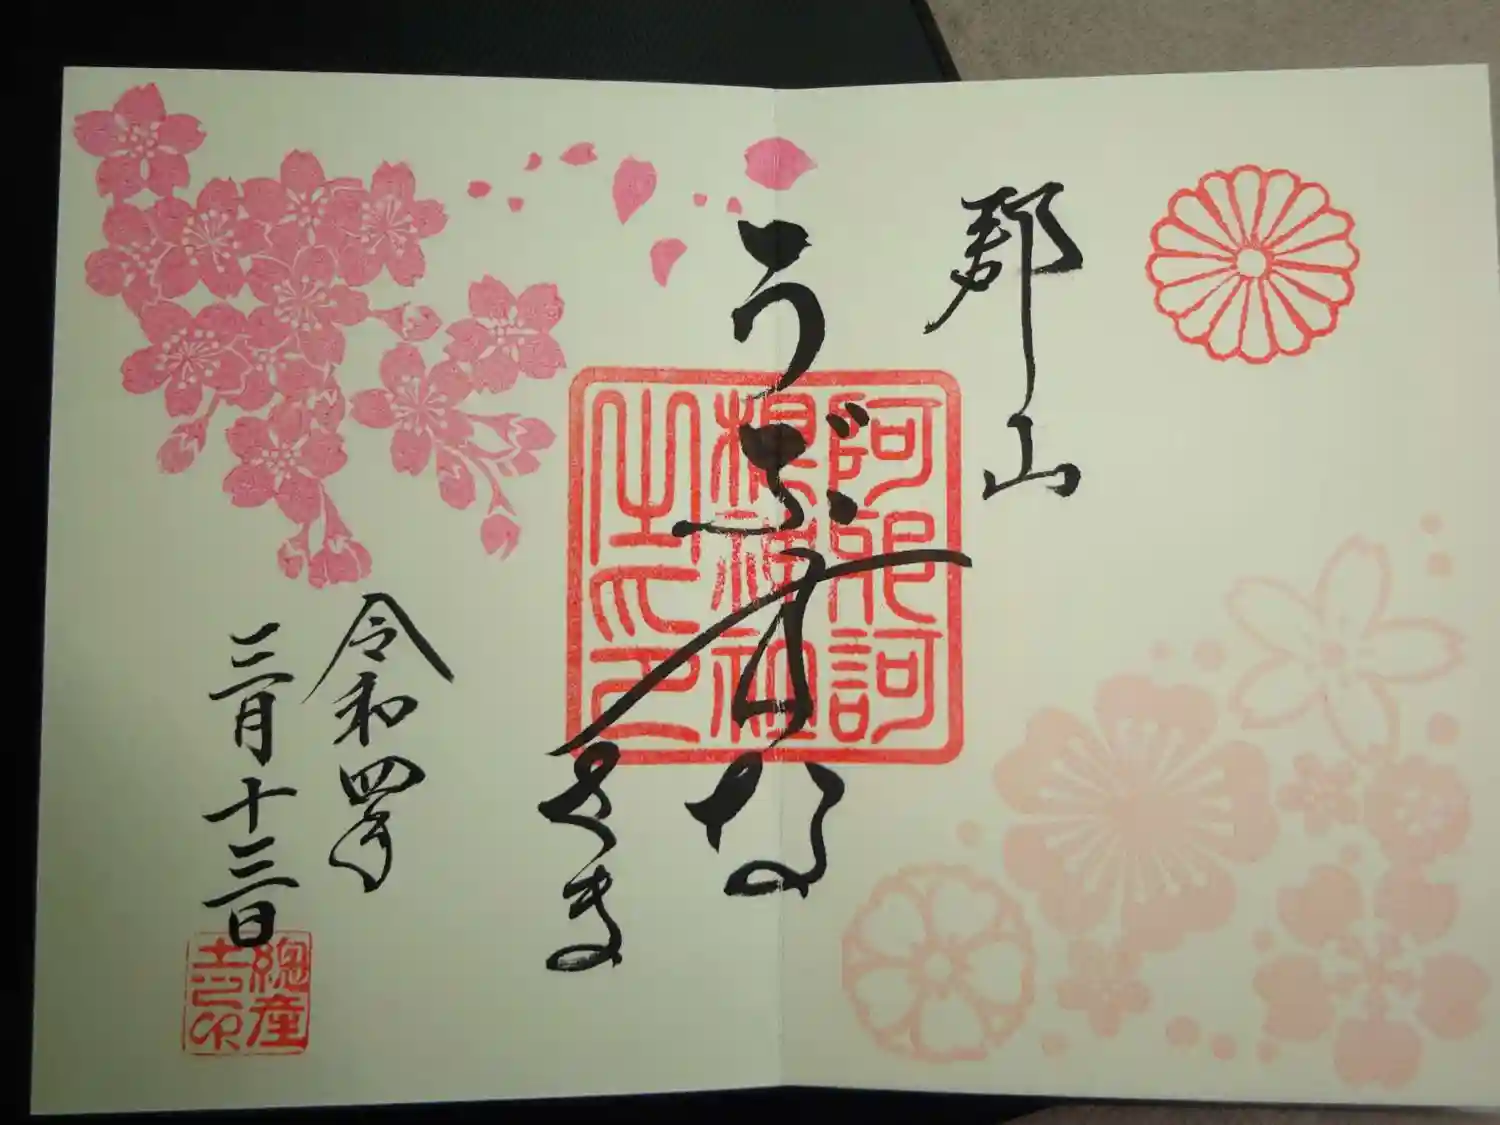 郡山
うぶすな
さま
令和四年
三月十三日
阿邪訶
根神社
之印
總産
土印